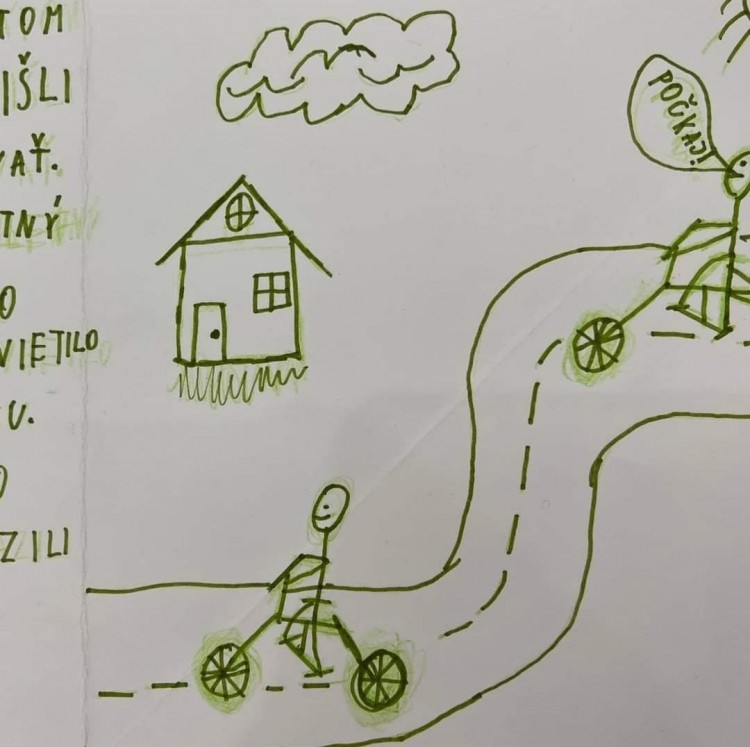 TOM
IŠLI
VAŤ.
TNÝ
O
VIETILO
U.
O
ZILI
POČKAJ!